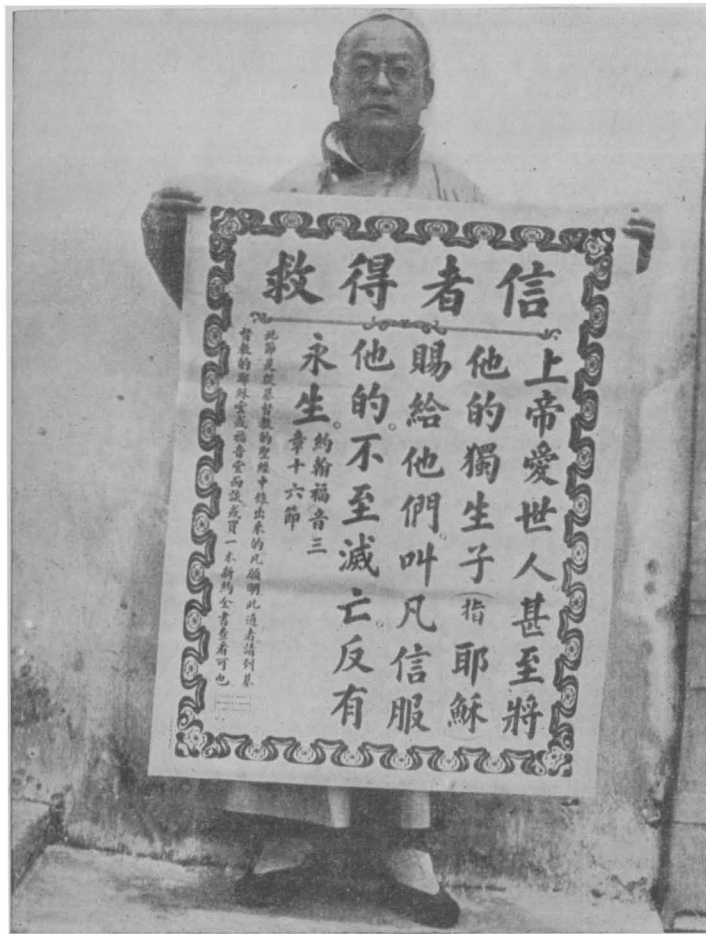 信者得救
上帝愛世人。甚至將
他的獨生子(指耶穌
賜給他們。叫凡信服
他的。不至滅亡。反有
永生。約翰福音三
章十六節
此節是從基督教的聖經中錄出來的凡願明此道者請到基
督教的耶穌堂或福音堂面談或買一本新約全書查看可也